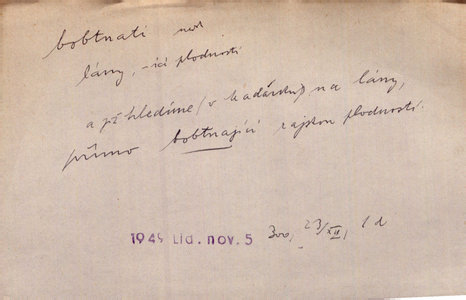 bobtnati ned.
lány, -ící plodností
a přehlédne (v kadářsku) na lány,
přímo bobtnající rajskou plodností.
1949 Lid. nov. 5 300, 23/XII, 1 d